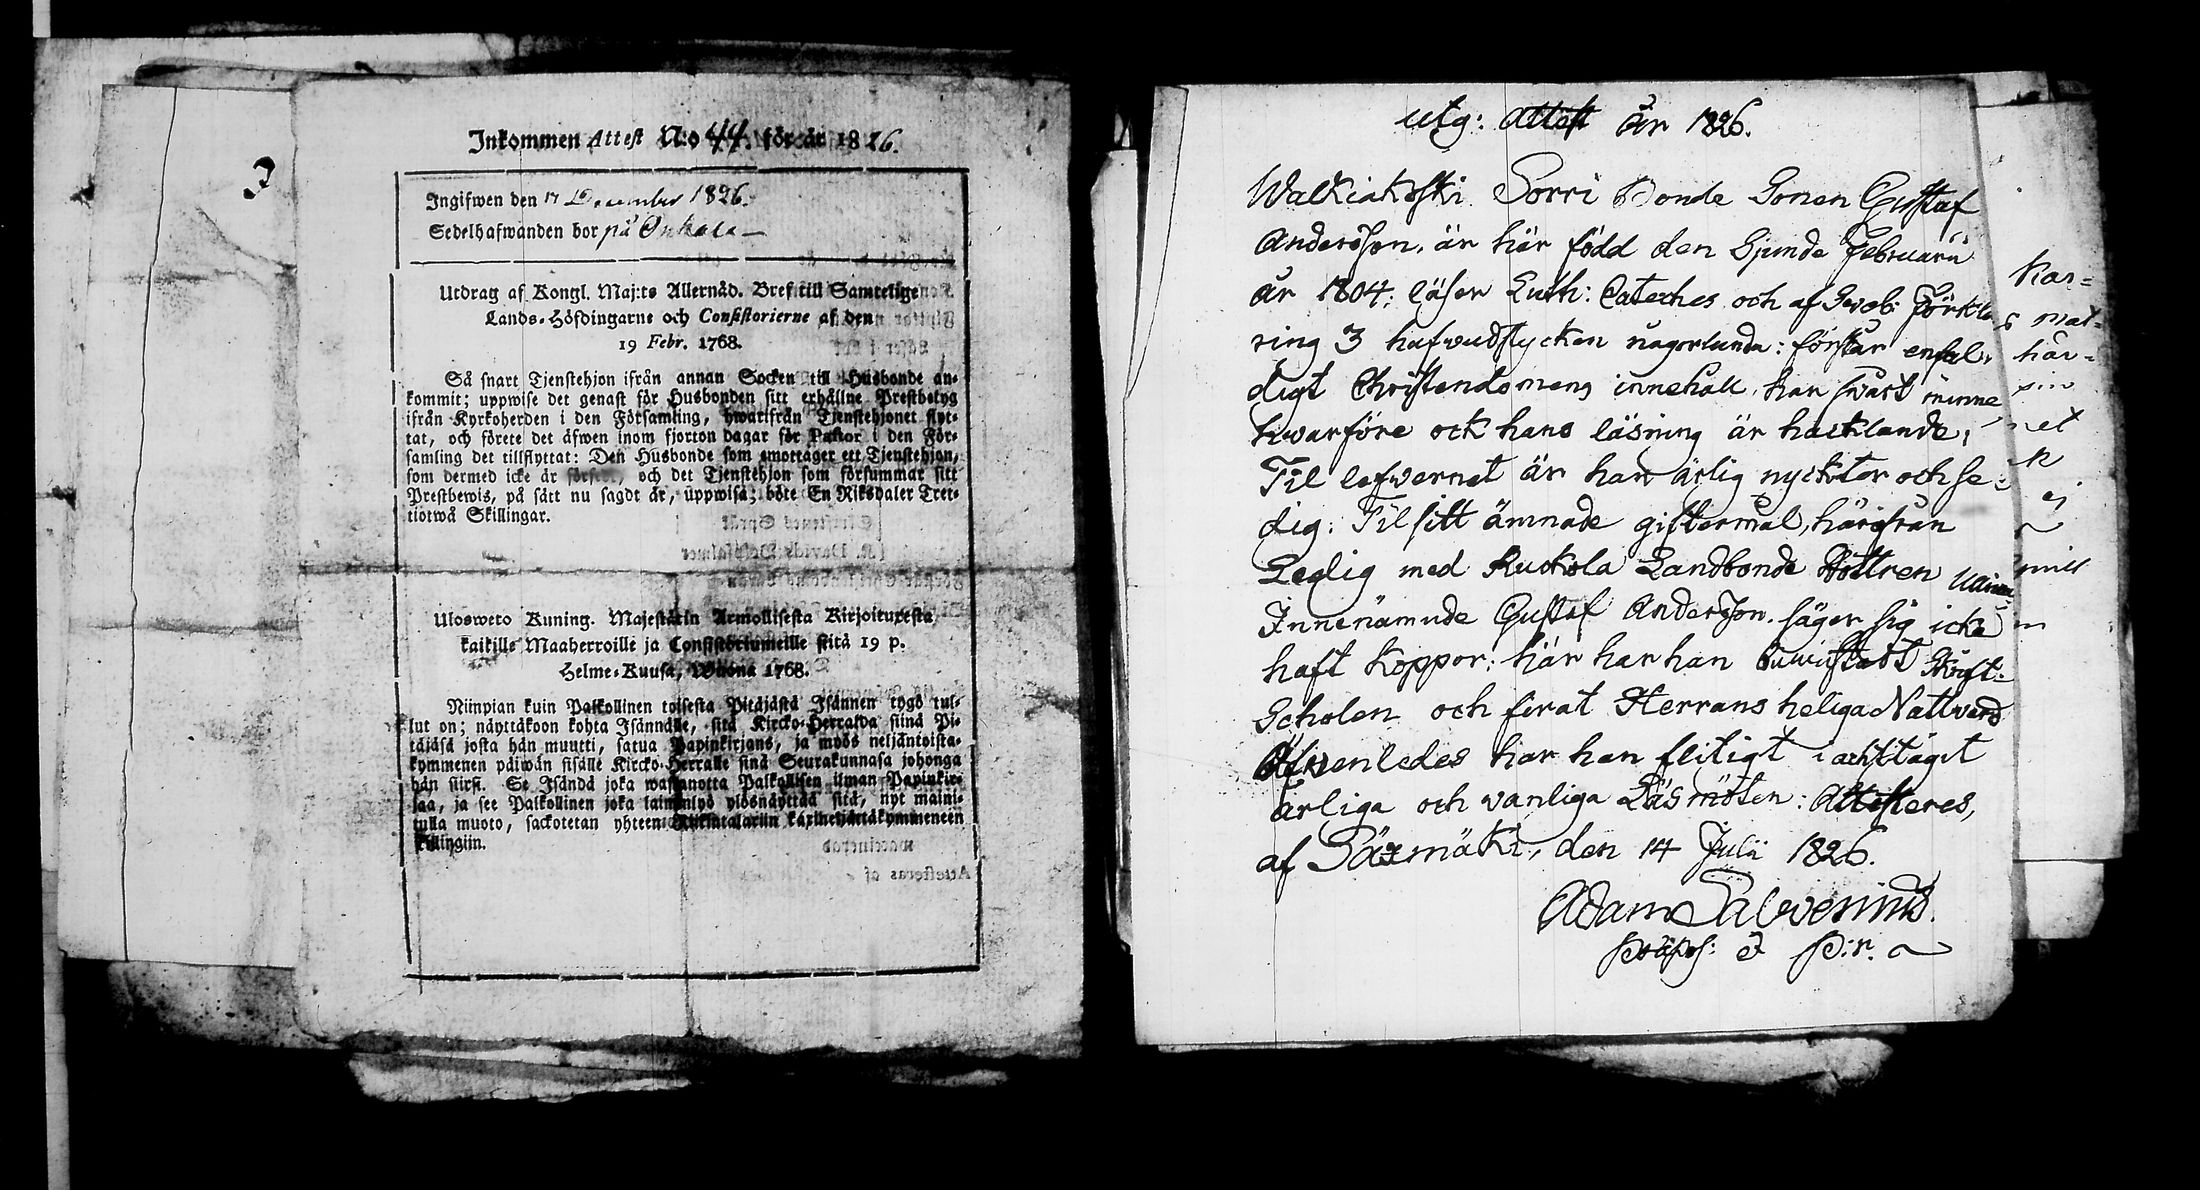 Inkommen Attest N:o 44. för år 1826.
Ingifwen den 17 December 1826.
Sedelhafwanden bor på Onkala
Utdrag af Kongl. Maj:ts Allernåd. Bref till Samtelige
Lands-Höfdingarne och Consistorierne af den
19 Febr. 1768.
Så snart Tjenstehjon ifrån annan Socken till Husbonde an-
kommit; uppwise det genast för Husbonden sitt erhållne Prestbetyg
ifrån Kyrkoherden i den Församling, hwarifrån Tjenstehjonet flyt-
tat, och förete det äfwen inom fjorton dagar för Pastor i den För-
samling det tillflyttat: Den Husbonde som emottager ett Tjenstehjon,
som dermed icke är försedt, och det Tjenstehjon som försummar sitt
Prestbewis, på sätt nu sagdt är, uppwisa; böte En Riksdaler Tret-
tiotwå Skillingar.
Ulosweto Kuning. Majestätin Armollisesta Kirjoituxesta
kaikille Maaherroille ja Consistoriumeille siitä 19 p.
Helme-Kuusa, Wuonna 1768.
Niinpian kuin Palkollinen toisesta Pitäjästä Isännen tygö tul-
lut on; näyttäkoon kohta Isännälle, sitä Kircko-Herralda siinä Pi-
täjäsä josta hän muutti, satua Papinkirjans, ja myös neljäntoista-
kymmenen päiwän sisälle Kircko-Herralle siinä Seurakunnasa johonga
hän siirsi. Se Isändä joka wastanotta Palkollisen ilman Papinkir-
jaa, ja see Palkollinen joka laiminlyö ylösnäyttää sitä, nyt maini-
tulla muoto, sackotetan yhteen Rikintalariin kaxineljättäkymmeneen
killingiin.
utg: Attest År 1826.
Walkiakoski Sorri Bonde Sonen Gustaf
Andersson, är här född den Sjunde Februarii
år 1804; läser Luth: Cateches och af Sveb: Förkla
ring 3 hufwudstycken någorlunda: förstår enfal-
digt Christendomens innehåll, har swårt minne
hwarföre ock hans läsning är hacklande;
Til lefwernet är han ärlig nyckter och se-
dig: Til sitt ämnade giftermål, härifrån
Ledig med Ruckola Landbonde Dottren
Innenämnde Gustaf Andersson säger sig icke
haft Koppor: här har han biwistadt Skrift-
Scholen och firat Herrans heliga Nattvard
Äfwenledes har han flitigt iachttagit
årliga och vanliga Läsmöten: Attesteres,
af Sääxmäki, den 14 Julii 1826.
Adam Salvenius
Præpos: & P:r.
Kas-
här-
sin
ej